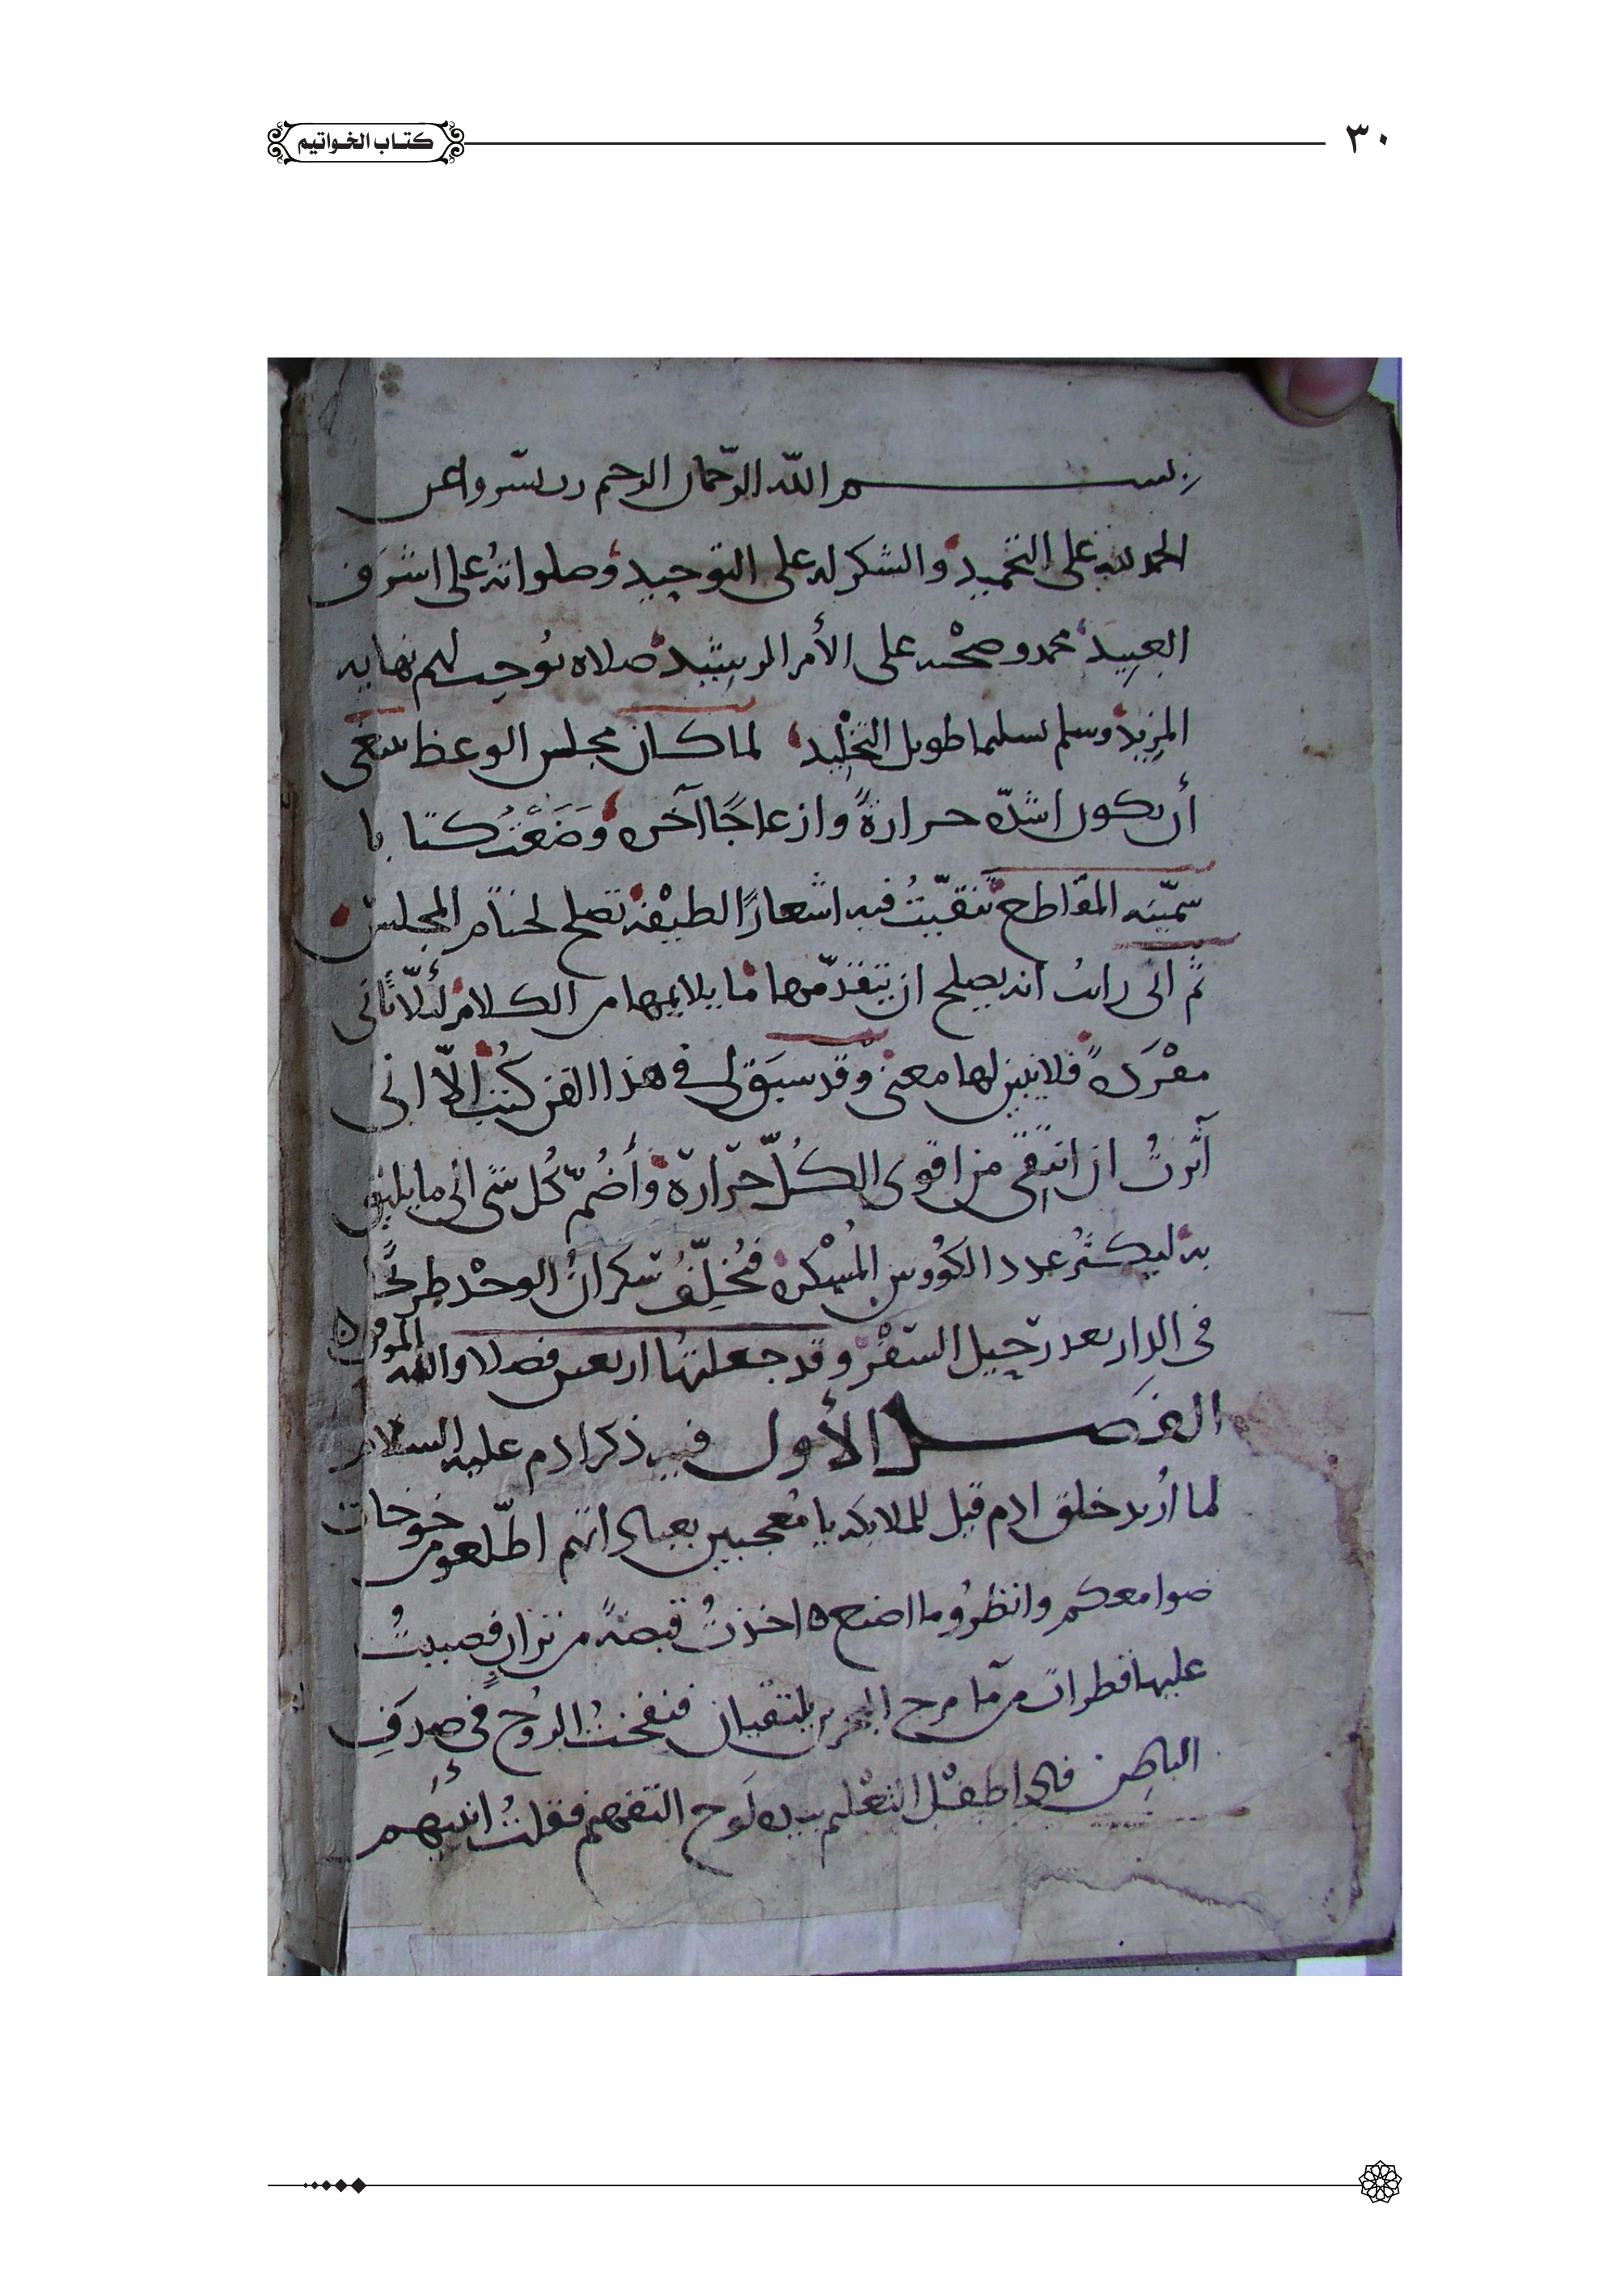 ٣٠
كتاب الخواتيم
بسم الله الرحمان الرحيم رب يسر واعن
الحمد لله على التحميد والشكر له على التوحيد وصلواته على اشرف
العبيد محمد وصحبه على الأمر الرشيد صلاه توجب لهم نهايه
المزيد وسلم تسليما طويل التخليد لما كان مجلس الوعظ ينبغى
أن يكون اشده حرارة وازعاجًا آخره وَضَعْتُ كتابا
سمّيته المقاطع تنقيّتُ فيه اشعارًا لطيفة تصلح لختام المجلس
ثم انى رايت انه يصلح ان يتقدّمها ما يلايمها من الكلام لئلّا تاتى
مفْرَدةً فلا يتبين لها معنى وقد سبَق لى فى هذا الفن كتب إلّا انى
آثرتُ ان انتقى من اقوى الكُلّ حرارة وأضُمّ كُل شى الى ما يليق
به ليكثُر عدد الكؤوس المُسْكره فتُخلِّفُ سكرانُ الوجْد طريحًا
فى الدار بعد رحيل السَفْر وقد جعلتها اربعين فصلا والله الموفق
الفصل الأول فى ذكر ادم عليه السلام
لما اُريد خلق ادم قيل للملايكه يا مُعجبين بعبادتهم اطّلعو من خوخات
صوامعكم وانظرُو ما اصنع ه اخذتُ قبضةً من ترابٍ فصببتُ
عليها قطرات من ما مرج البحرين يلتقيان فنفختُ الروُح فى صدَفِ
الباطن فاذا طفْل التعْليم بيده لَوح التفهيم فقلتُ انبئهم